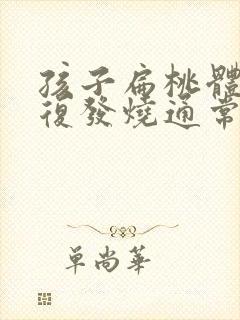 孩子扁桃體
復發燒通常
單尚華